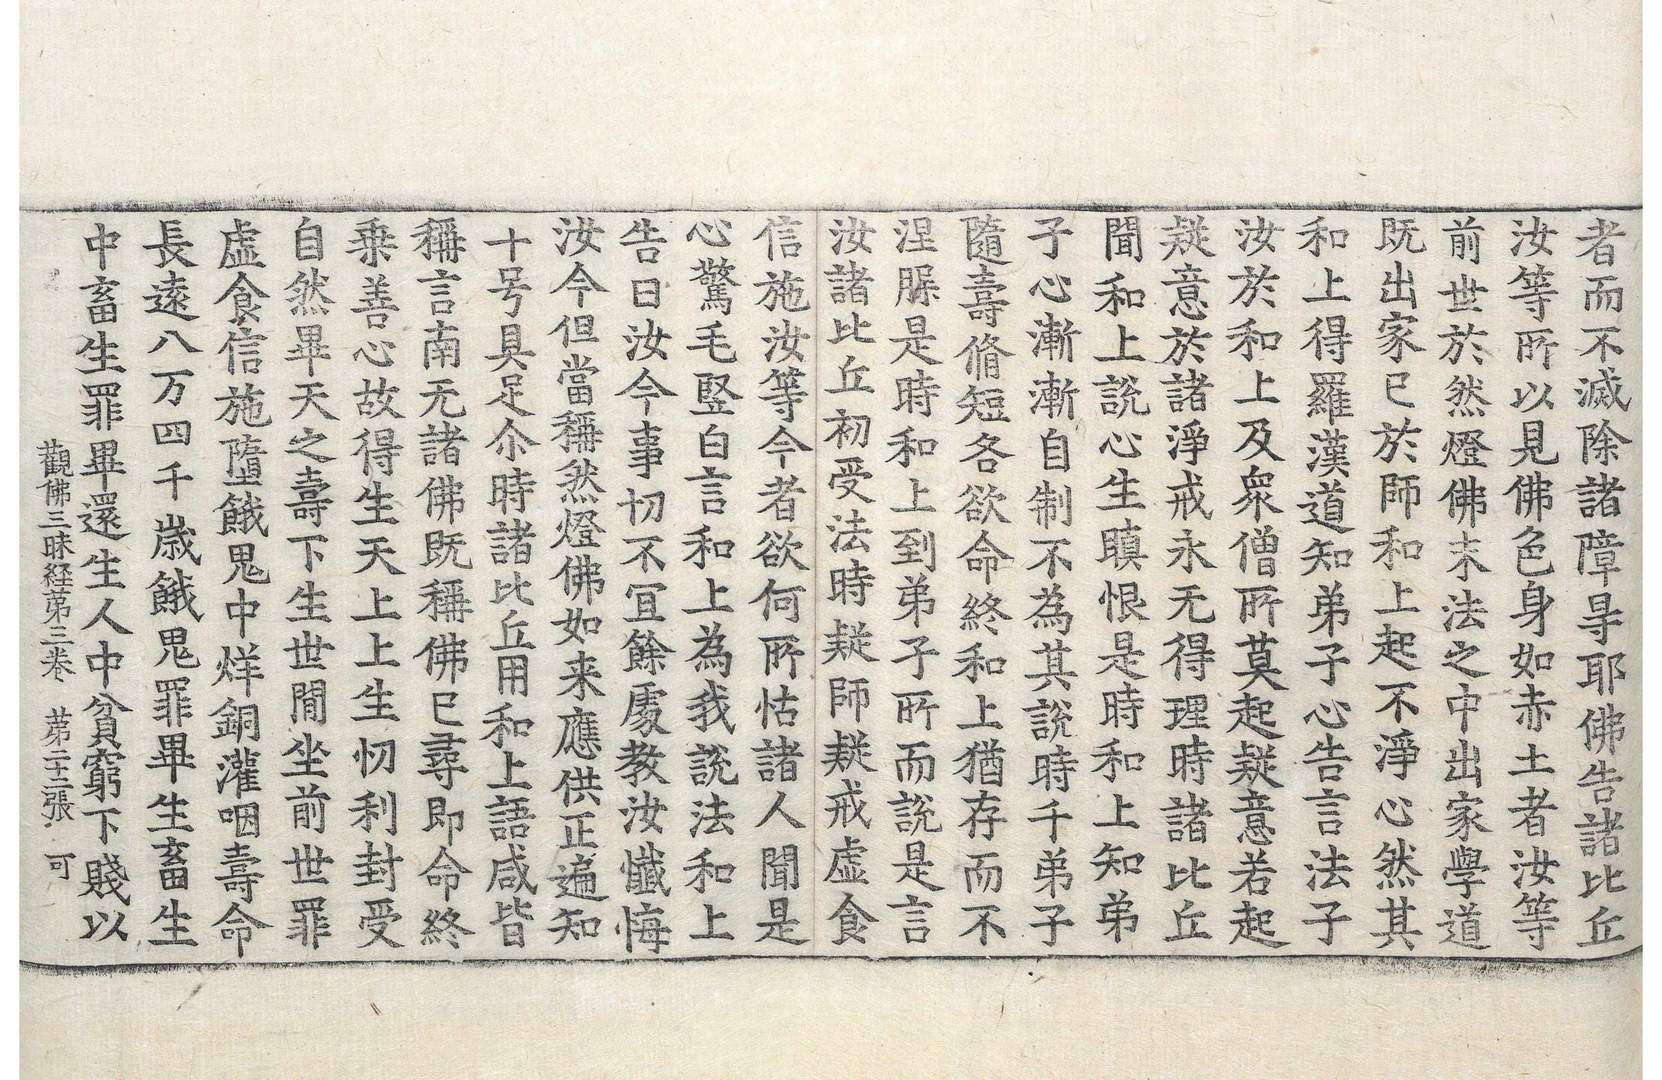 者而不滅除諸障㝵耶佛告諸比丘
汝等所以見佛色身如赤土者汝等
前世於然燈佛末法之中出家學道
既出家已於師和上起不淨心然其
和上得羅漢道知弟子心告言法子
汝於和上及衆僧所莫起疑意若起
疑意於諸淨戒永无得理時諸比丘
聞和上說心生瞋恨是時和上知弟
子心漸漸自制不為其說時千弟子
隨壽脩短各欲命終和上猶存而不
涅槃是時和上到弟子所而說是言
汝諸比丘初受法時疑師疑戒虛食
信施汝等今者欲何所怙諸人聞是
心驚毛竪白言和上為我說法和上
告曰汝今事切不冝餘處教汝懺悔
汝今但當稱然燈佛如来應供正遍知
十号具足尒時諸比丘用和上語咸皆
稱言南无諸佛既稱佛已尋即命終
乗善心故得生天上上生忉利封受
自然畢天之壽下生世閒坐前世罪
虛食信施墮餓鬼中烊銅灌咽壽命
長遠八万四千歳餓鬼罪畢生畜生
中畜生罪畢還生人中貧窮下賤以
觀佛三昧経第三卷 第二十三張 可